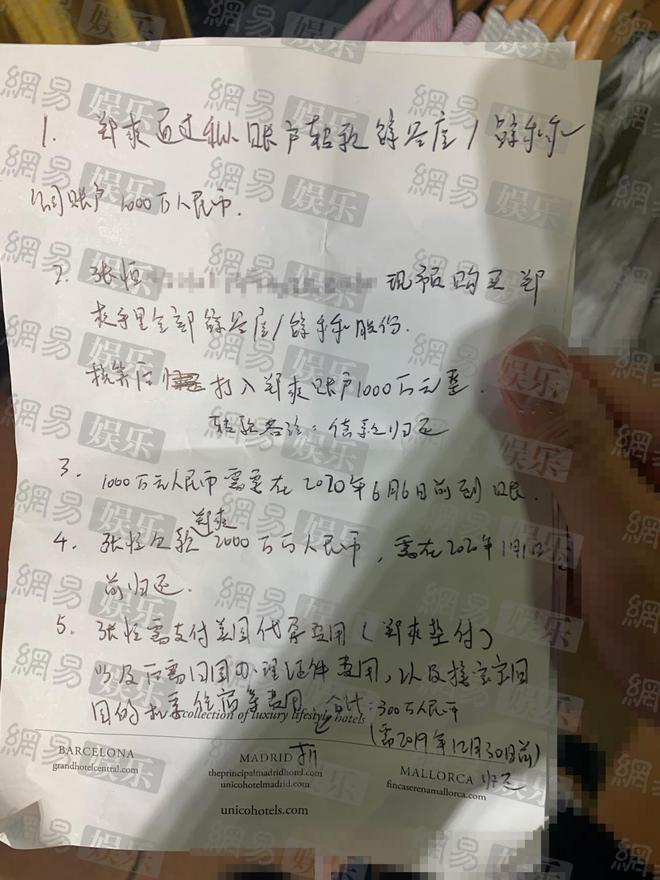 1. 郑爽通过私账户转款
公司账户1000万人民币.
2. 张恒 现预购买郑
爽手里全部 股份.
核算后 打入郑爽账户1000万元整.
转款备注:借款归还
3. 1000万元人民币需要在2020年6月6日前到账.
郑爽
4. 张恒欠款2000万 人民币,需在2020年1月1日
前归还.
5. 张恒需支付美国代孕费用(郑爽垫付)
以及后需回国办理证件费用,以及接宝宝回
国的机票住宿等费用 合计:300万人民币
collection of luxury lifestyle hotels
(需2019年12月30日前)
归还
BARCELONA
grandhotelcentral.com
MADRID
theprincipalmadridhotel.com
unicohotelmadrid.com
MALLORCA
fincaserenamallorca.com
unicohotels.com
網易娱乐